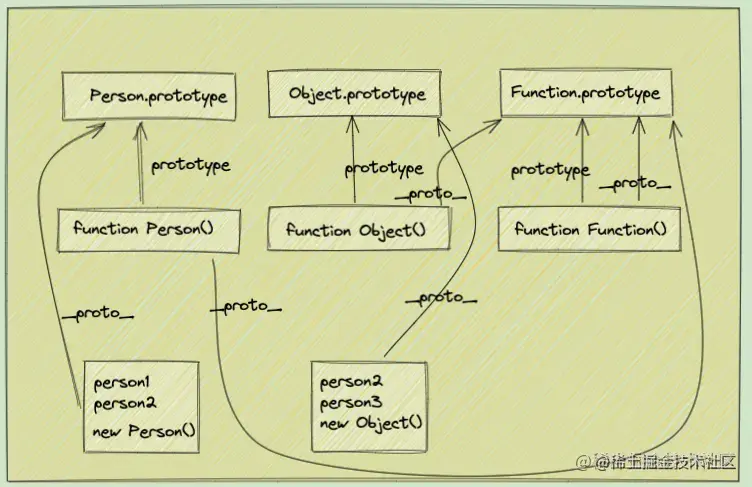 Person.prototype
Object.prototype
Function.prototype
prototype
prototype
__proto__
prototype
__proto__
function Person()
function Object()
function Function()
__proto__
__proto__
__proto__
person1
person2
new Person()
person2
person3
new Object()
@稀土掘金技术社区